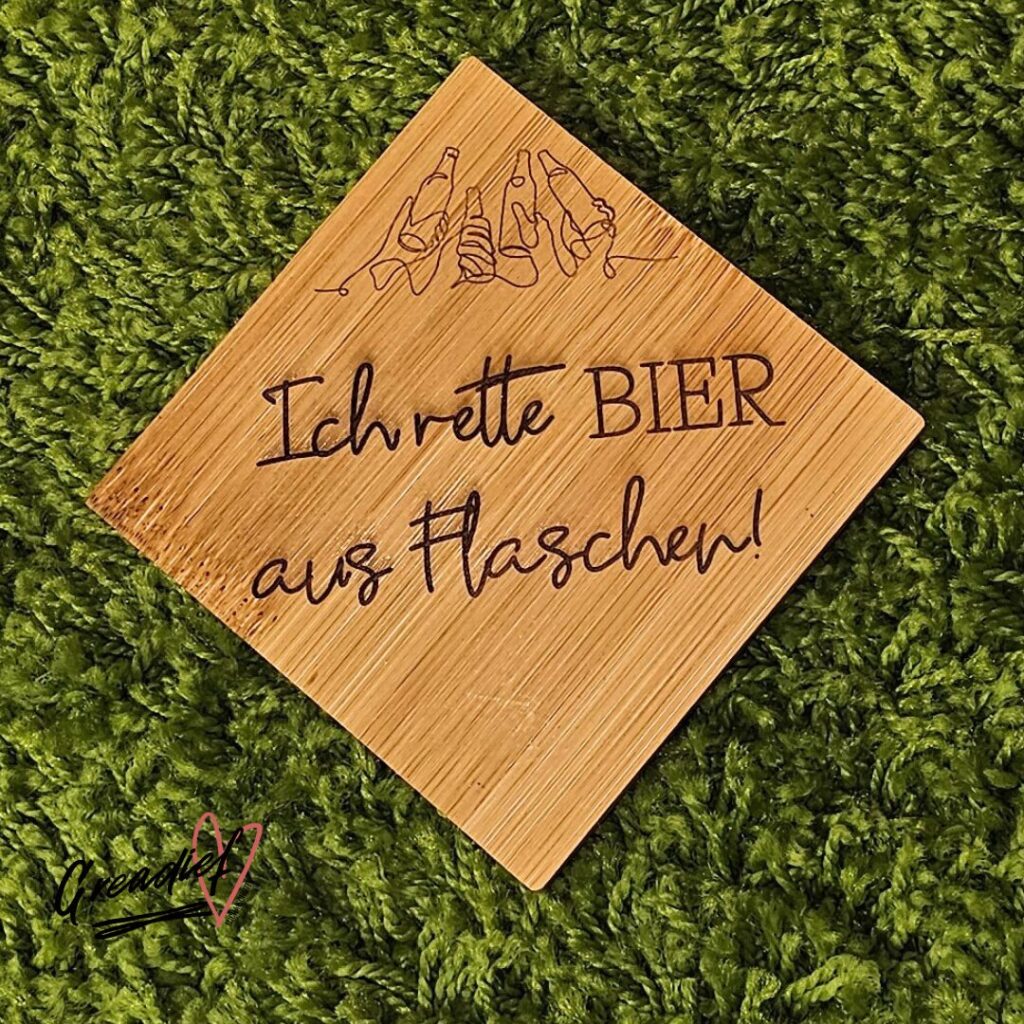 Ich rette BIER
aus Flaschen!
Greadief